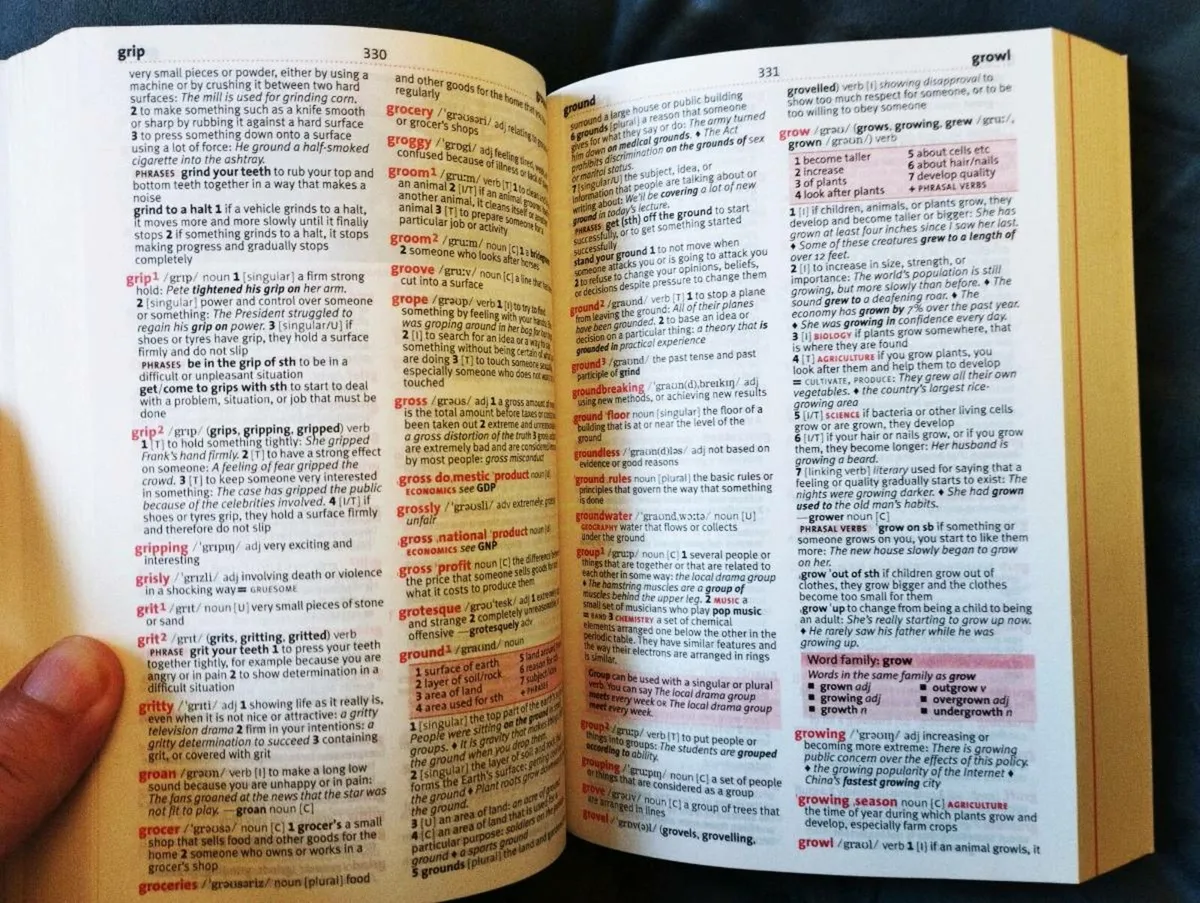 grip
330
very small pieces or powder, either by using a
machine or by crushing it between two hard
surfaces: The mill is used for grinding corn.
2 to make something such as a knife smooth
or sharp by rubbing it against a hard surface
3 to press something down onto a surface
using a lot of force: He ground a half-smoked
cigarette into the ashtray.
PHRASES grind your teeth to rub your top and
bottom teeth together in a way that makes a
noise
grind to a halt 1 if a vehicle grinds to a halt,
it moves more and more slowly until it finally
stops 2 if something grinds to a halt, it stops
making progress and gradually stops
completely
grip1 /grɪp/ noun 1 [singular] a firm strong
hold: Pete tightened his grip on her arm.
2 [singular] power and control over someone
or something: The President struggled to
regain his grip on power. 3 [singular/U] if
shoes or tyres have grip, they hold a surface
firmly and do not slip
PHRASES be in the grip of sth to be in a
difficult or unpleasant situation
get/come to grips with sth to start to deal
with a problem, situation, or job that must be
done
grip2 /grɪp/ (grips, gripping, gripped) verb
1 [T] to hold something tightly: She gripped
Frank's hand firmly. 2 [T] to have a strong effect
on someone: A feeling of fear gripped the
crowd. 3 [T] to keep someone very interested
in something: The case has gripped the public
because of the celebrities involved. 4 [I/T] if
shoes or tyres grip, they hold a surface firmly
and therefore do not slip
gripping /ˈgrɪpɪŋ/ adj very exciting and
interesting
grisly /ˈgrɪzli/ adj involving death or violence
in a shocking way = GRUESOME
grit1 /grɪt/ noun [U] very small pieces of stone
or sand
grit2 /grɪt/ (grits, gritting, gritted) verb
PHRASE grit your teeth 1 to press your teeth
together tightly, for example because you are
angry or in pain 2 to show determination in a
difficult situation
gritty /ˈgrɪti/ adj 1 showing life as it really is,
even when it is not nice or attractive: a gritty
television drama 2 firm in your intentions: a
gritty determination to succeed 3 containing
grit, or covered with grit
groan /grəʊn/ verb [I] to make a long low
sound because you are unhappy or in pain:
The fans groaned at the news that the star was
not fit to play. —groan noun [C]
grocer /ˈgrəʊsə/ noun [C] 1 grocer's a small
shop that sells food and other goods for the
home 2 someone who owns or works in a
grocer's shop
groceries /ˈgrəʊsəriz/ noun [plural] food
and other goods for the home that you
regularly
grocery /ˈgrəʊsəri/ adj relating to
or grocer's shops
groggy /ˈgrɒgi/ adj feeling tired,
confused because of illness or lack of
groom1 /gruːm/ verb 1 [T] to clean
an animal 2 [I/T] if an animal grooms
another animal, it cleans itself or
animal 3 [T] to prepare someone for a
particular job or activity
groom2 /gruːm/ noun [C] 1 a bridegroom
2 someone who looks after horses
groove /gruːv/ noun [C] a line that
cut into a surface
grope /grəʊp/ verb 1 [I] to try to find
something by feeling with your hands:
was groping around in her bag for
2 [I] to search for an idea or a way to
something without being certain of what
are doing 3 [T] to touch someone sexually,
especially someone who does not want
touched
gross /grəʊs/ adj 1 a gross amount of
is the total amount before taxes or costs
been taken out 2 extreme and unreasonable
a gross distortion of the truth 3 gross
are extremely bad and are considered
by most people: gross misconduct
gross doˌmestic ˈproduct noun [U]
ECONOMICS see GDP
grossly /ˈgrəʊsli/ adv extremely:
unfair
gross ˌnational ˈproduct noun [U]
ECONOMICS see GNP
gross ˈprofit noun [C] the difference
the price that someone sells goods for
what it costs to produce them
grotesque /grəʊˈtesk/ adj 1 extremely
and strange 2 completely unreasonable
offensive —grotesquely adv
ground1 /graʊnd/ noun
1 surface of earth 5 land around
2 layer of soil/rock 6 reason for
3 area of land 7 subject
4 area used for sth + PHRASES
1 [singular] the top part of the earth's
People were sitting on the ground in
groups. ♦ It is gravity that makes
the ground when you drop them.
2 [singular] the layer of soil and rock that
forms the Earth's surface:
the ground ♦ Plant roots grow down
the ground.
3 [U] an area of land: an acre of ground
4 [C] an area of land that is used for a
particular purpose: soldiers on the
ground ♦ a sports ground
5 grounds [plural] the land and gardens
ground
331
growl
surround a large house or public building
6 grounds [plural] a reason that someone
gives for what they say or do: The army turned
him down on medical grounds. ♦ The Act
prohibits discrimination on the grounds of sex
or marital status.
7 [singular/U] the subject, idea, or
information that people are talking about or
writing about: We'll be covering a lot of new
ground in today's lecture.
PHRASES get (sth) off the ground to start
successfully, or to get something started
successfully
stand your ground 1 to not move when
someone attacks you or is going to attack you
2 to refuse to change your opinions, beliefs,
or decisions despite pressure to change them
ground2 /graʊnd/ verb [T] 1 to stop a plane
from leaving the ground: All of their planes
have been grounded. 2 to base an idea or
decision on a particular thing: a theory that is
grounded in practical experience
ground3 /graʊnd/ the past tense and past
participle of grind
groundbreaking /ˈgraʊn(d)ˌbreɪkɪŋ/ adj
using new methods, or achieving new results
ground ˈfloor noun [singular] the floor of a
building that is at or near the level of the
ground
groundless /ˈgraʊn(d)ləs/ adj not based on
evidence or good reasons
ˈground ˌrules noun [plural] the basic rules or
principles that govern the way that something
is done
groundwater /ˈgraʊndˌwɔːtə/ noun [U]
GEOGRAPHY water that flows or collects
under the ground
group1 /gruːp/ noun [C] 1 several people or
things that are together or that are related to
each other in some way: the local drama group
♦ The hamstring muscles are a group of
muscles behind the upper leg. 2 MUSIC a
small set of musicians who play pop music
= BAND 3 CHEMISTRY a set of chemical
elements arranged one below the other in the
periodic table. They have similar features and
the way their electrons are arranged in rings
is similar.
Group can be used with a singular or plural
verb. You can say The local drama group
meets every week OR The local drama group
meet every week.
group2 /gruːp/ verb [T] to put people or
things into groups: The students are grouped
according to ability.
grouping /ˈgruːpɪŋ/ noun [C] a set of people
or things that are considered as a group
grove /grəʊv/ noun [C] a group of trees that
are arranged in lines
grovel /ˈgrɒv(ə)l/ (grovels, grovelling,
grovelled) verb [I] showing disapproval to
show too much respect for someone, or to be
too willing to obey someone
grow /grəʊ/ (grows, growing, grew /gruː/,
grown /grəʊn/) verb
1 become taller 5 about cells etc
2 increase 6 about hair/nails
3 of plants 7 develop quality
4 look after plants + PHRASAL VERBS
1 [I] if children, animals, or plants grow, they
develop and become taller or bigger: She has
grown at least four inches since I saw her last.
♦ Some of these creatures grew to a length of
over 12 feet.
2 [I] to increase in size, strength, or
importance: The world's population is still
growing, but more slowly than before. ♦ The
sound grew to a deafening roar. ♦ The
economy has grown by 7% over the past year.
♦ She was growing in confidence every day.
3 [I] BIOLOGY if plants grow somewhere, that
is where they are found
4 [T] AGRICULTURE if you grow plants, you
look after them and help them to develop
= CULTIVATE, PRODUCE: They grew all their own
vegetables. ♦ the country's largest rice-
growing area
5 [I/T] SCIENCE if bacteria or other living cells
grow or are grown, they develop
6 [I/T] if your hair or nails grow, or if you grow
them, they become longer: Her husband is
growing a beard.
7 [linking verb] literary used for saying that a
feeling or quality gradually starts to exist: The
nights were growing darker. ♦ She had grown
used to the old man's habits.
—grower noun [C]
PHRASAL VERBS ˈgrow on sb if something or
someone grows on you, you start to like them
more: The new house slowly began to grow
on her.
ˌgrow ˈout of sth if children grow out of
clothes, they grow bigger and the clothes
become too small for them
ˌgrow ˈup to change from being a child to being
an adult: She's really starting to grow up now.
♦ He rarely saw his father while he was
growing up.
Word family: grow
Words in the same family as grow
■ grown adj ■ outgrow v
■ growing adj ■ overgrown adj
■ growth n ■ undergrowth n
growing /ˈgrəʊɪŋ/ adj increasing or
becoming more extreme: There is growing
public concern over the effects of this policy.
♦ the growing popularity of the Internet ♦
China's fastest growing city
ˈgrowing ˌseason noun [C] AGRICULTURE
the time of year during which plants grow and
develop, especially farm crops
growl /graʊl/ verb 1 [I] if an animal growls, it